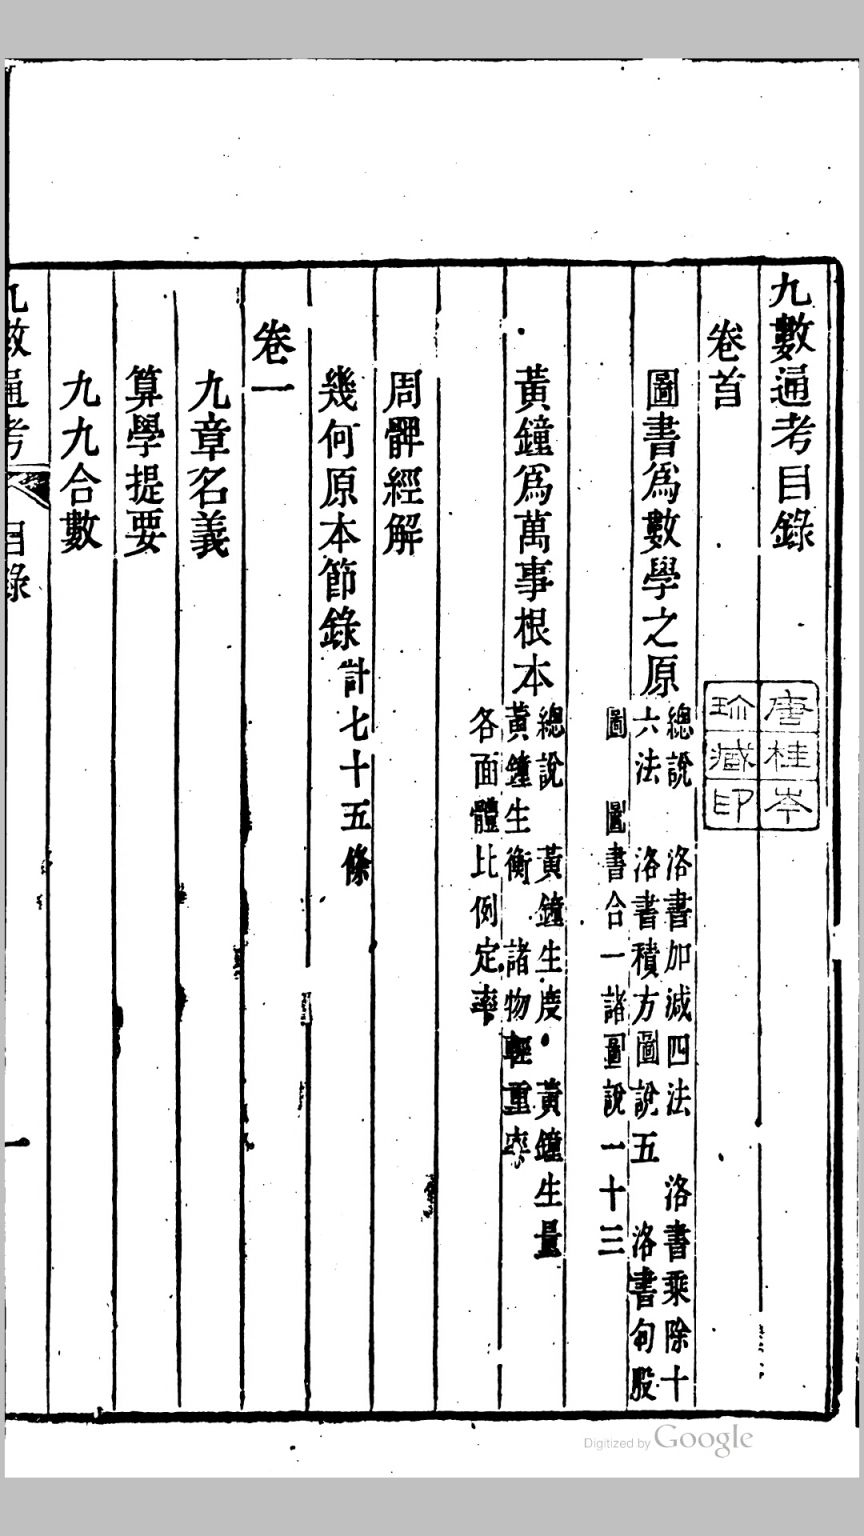 九數通考目錄
卷首
圖書爲數學之原
總說 洛書加減四法 洛書乘除十
六法 洛書積方圖說五 洛書句股
圖 圖書合一諸圖說一十三
黃鐘爲萬事根本
總說 黃鐘生度 黃鐘生量
黃鐘生衡 諸物輕重率
各面體比例定率
周髀經解
幾何原本節錄計七十五條
卷一
九章名義
算學提要
九九合數
九數通考
目錄
一
唐桂岑
珍藏印
Digitized by Google